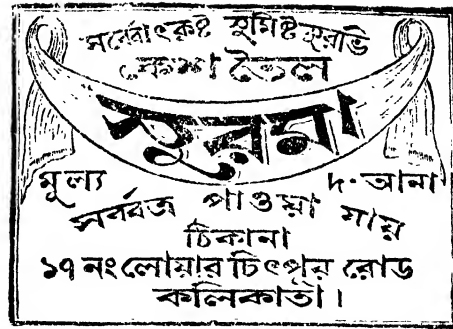 সর্ব্বোৎকৃষ্ট সুমিষ্ট সুরভি
কেশ তৈল
সুরমা
মূল্য ৸৹ আনা
সর্ববত্র পাওয়া যায়
ঠিকানা
১৭ নং লোয়ার চিৎপুর রোড
কলিকাতা।